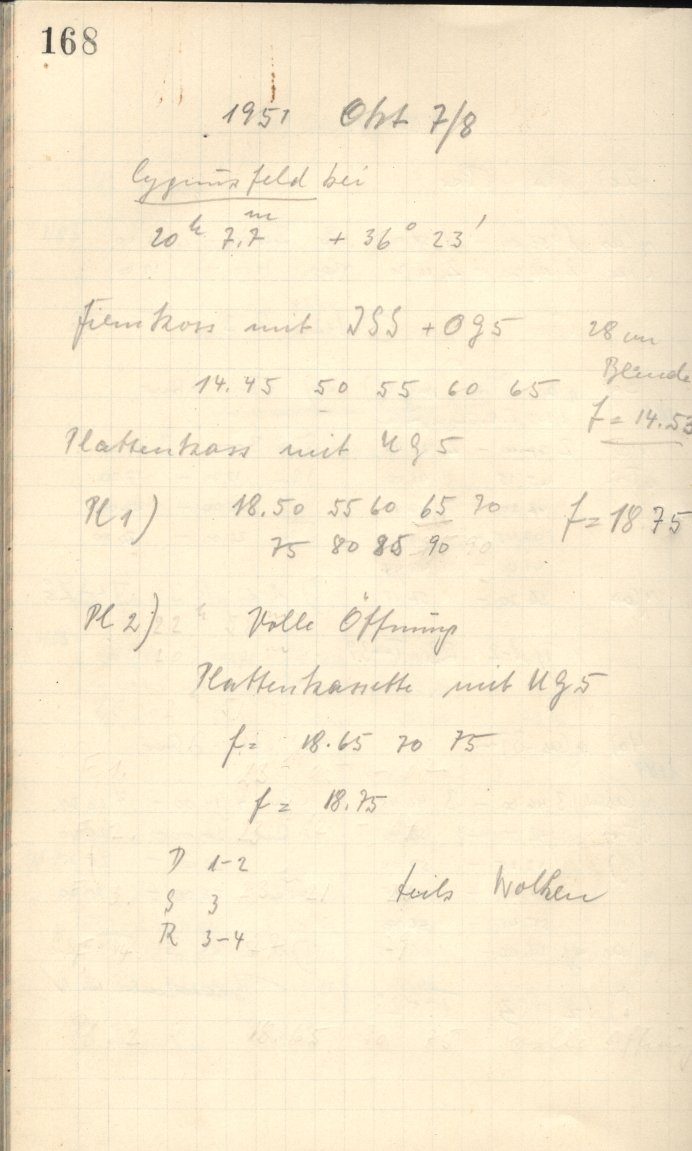 168
1951 Okt 7/8
Cygnusfeld bei
20h 7.7m + 36° 23'
Filmkass mit ISS + OG5 28 cm
Blende
14.45 50 55 60 65
f = 14.53
Plattenkass mit UG5
Pl 1) 18.50 55 60 65 70 f = 18 75
75 80 85 90
Pl 2) Volle Öffnung
Plattenkassette mit UG5
f = 18.65 70 75
f = 18.75
D 1-2
S 3 teils Wolken
R 3-4